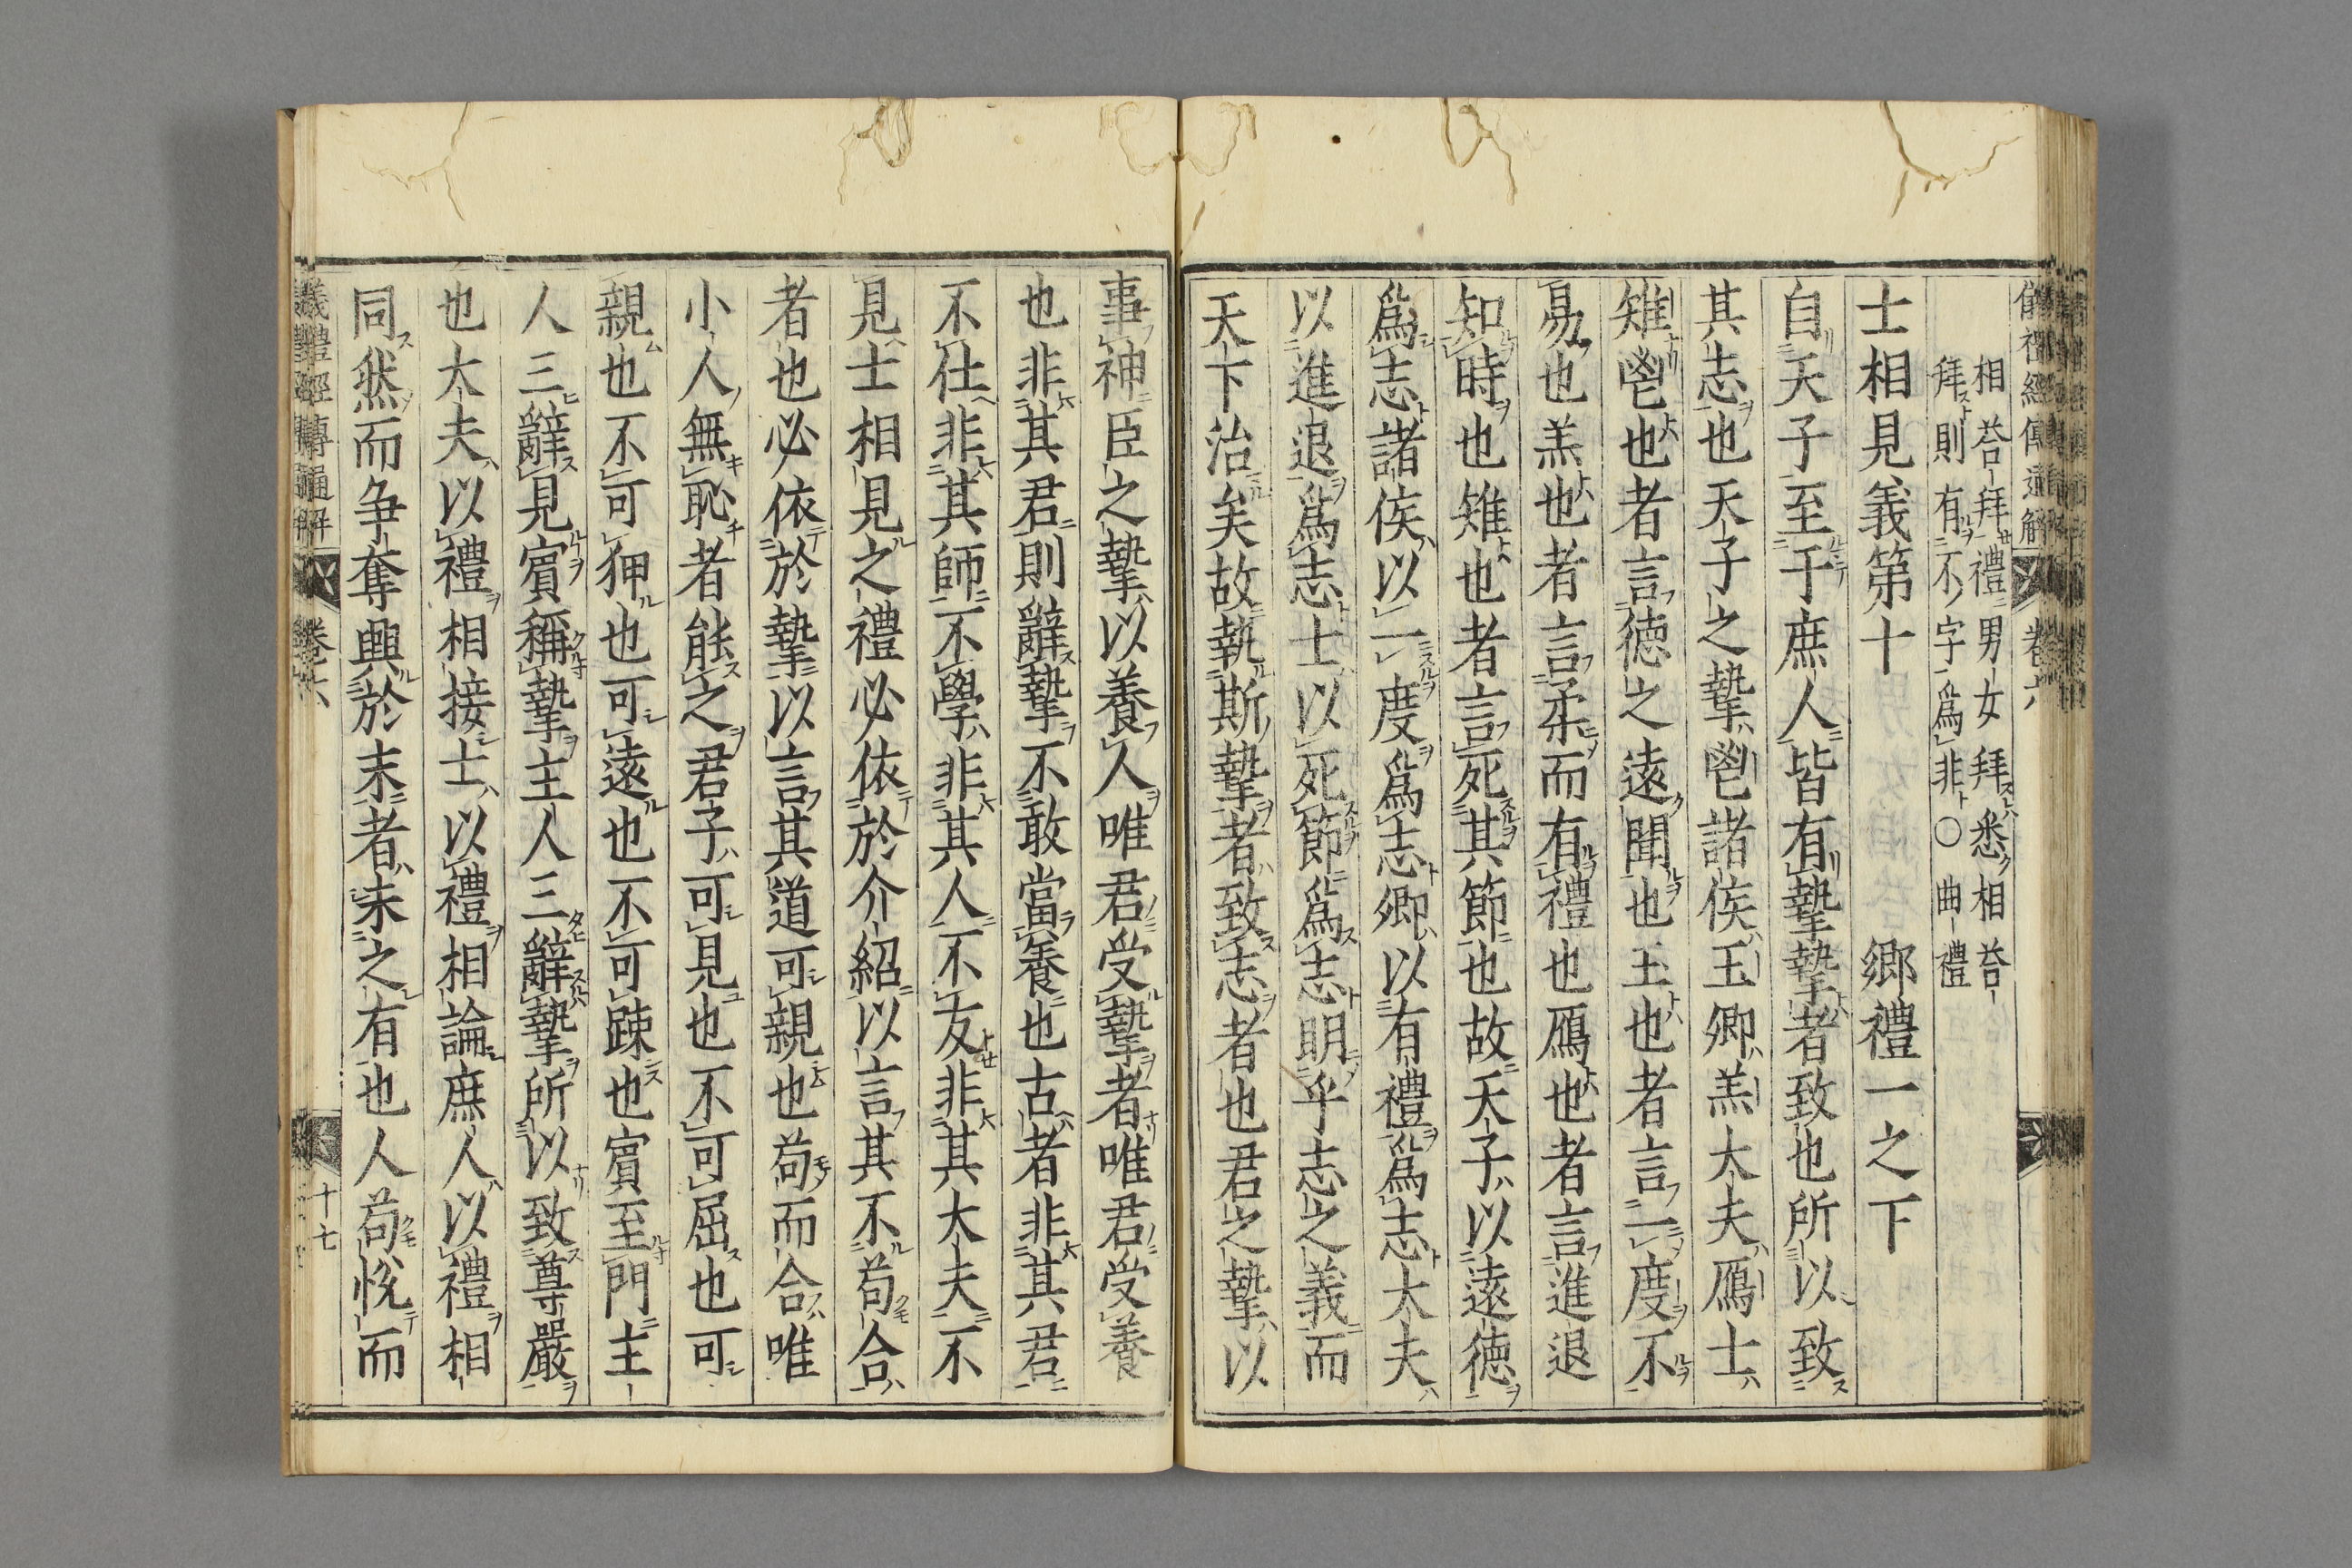 儀禮經傳通解 卷六
相荅拜禮男女拜悉相荅
拜則有不字爲非○曲禮
士相見義第十 鄉禮一之下
自天子至于庶人皆有摯摯者致也所以致
其志也天子之摯鬯諸侯玉卿羔大夫鴈士
雉鬯也者言德之遠聞也玉也者言一度不
易也羔也者言柔而有禮也鴈也者言進退
知時也雉也者言死其節也故天子以遠德
爲志諸侯以一度爲志卿以有禮爲志大夫
以進退爲志士以死節爲志明乎志之義而
天下治矣故執斯摯者致志者也君之摯以
事神臣之摯以養人唯君受摯者唯君受養
也非其君則辭摯不敢當養也古者非其君
不仕非其師不學非其人不友非其大夫不
見士相見之禮必依於介紹以言其不苟合
者也必依於摯以言其道可親也苟而合唯
小人無恥者能之君子可見也不可屈也可
親也不可狎也可遠也不可踈也賓至門主
人三辭見賓稱摯主人三辭摯所以致尊嚴
也大夫以禮相接士以禮相論庶人以禮相
同然而争奪興於末者未之有也人苟悅而
儀禮經傳通解 卷六 十七